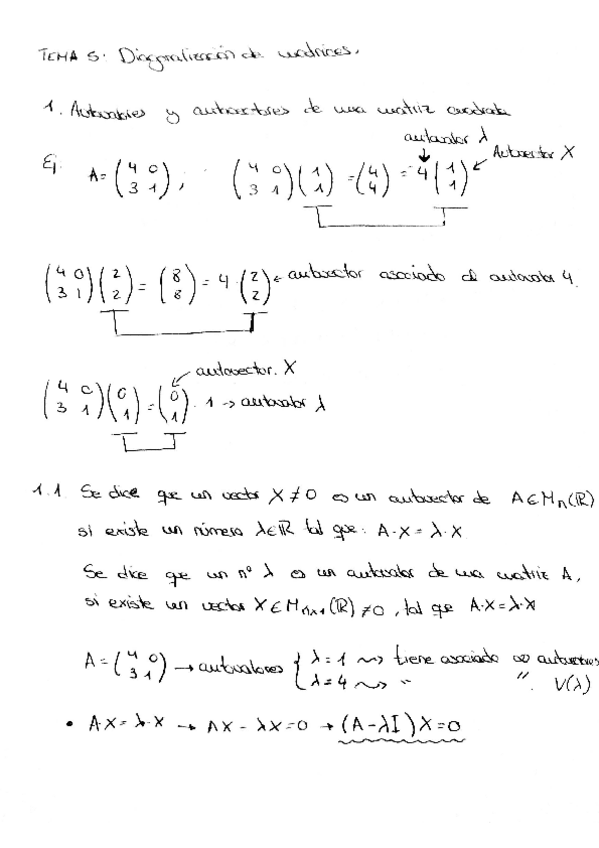 TEMA 5: Diagonalización de matrices.
1. Autovalores y autovectores de una matriz cuadrada
autovalor λ
Autovector X
Ej. A=(4 0; 3 1); (4 0; 3 1)(1; 1)=(4; 4)=4(1; 1)
(4 0; 3 1)(2; 2)=(8; 8)=4·(2; 2) ← autovector asociado al autovalor 4.
autovector. X
(4 0; 3 1)(0; 1)=(0; 1)·1 → autovalor λ
1.1. Se dice que un vector X≠0 es un autovector de A∈Mn(ℝ)
si existe un número λ∈ℝ tal que: A·X=λ·X.
Se dice que un nº λ es un autovalor de una matriz A,
si existe un vector X∈Mn×1(ℝ)≠0, tal que A·X=λ·X
A=(4 0; 3 1) → autovalores { λ=1 ⇝ tiene asociado ∞ autovectores
λ=4 ⇝ " ". V(λ)
• A·X=λ·X → AX-λX=0 → (A-λI)X=0